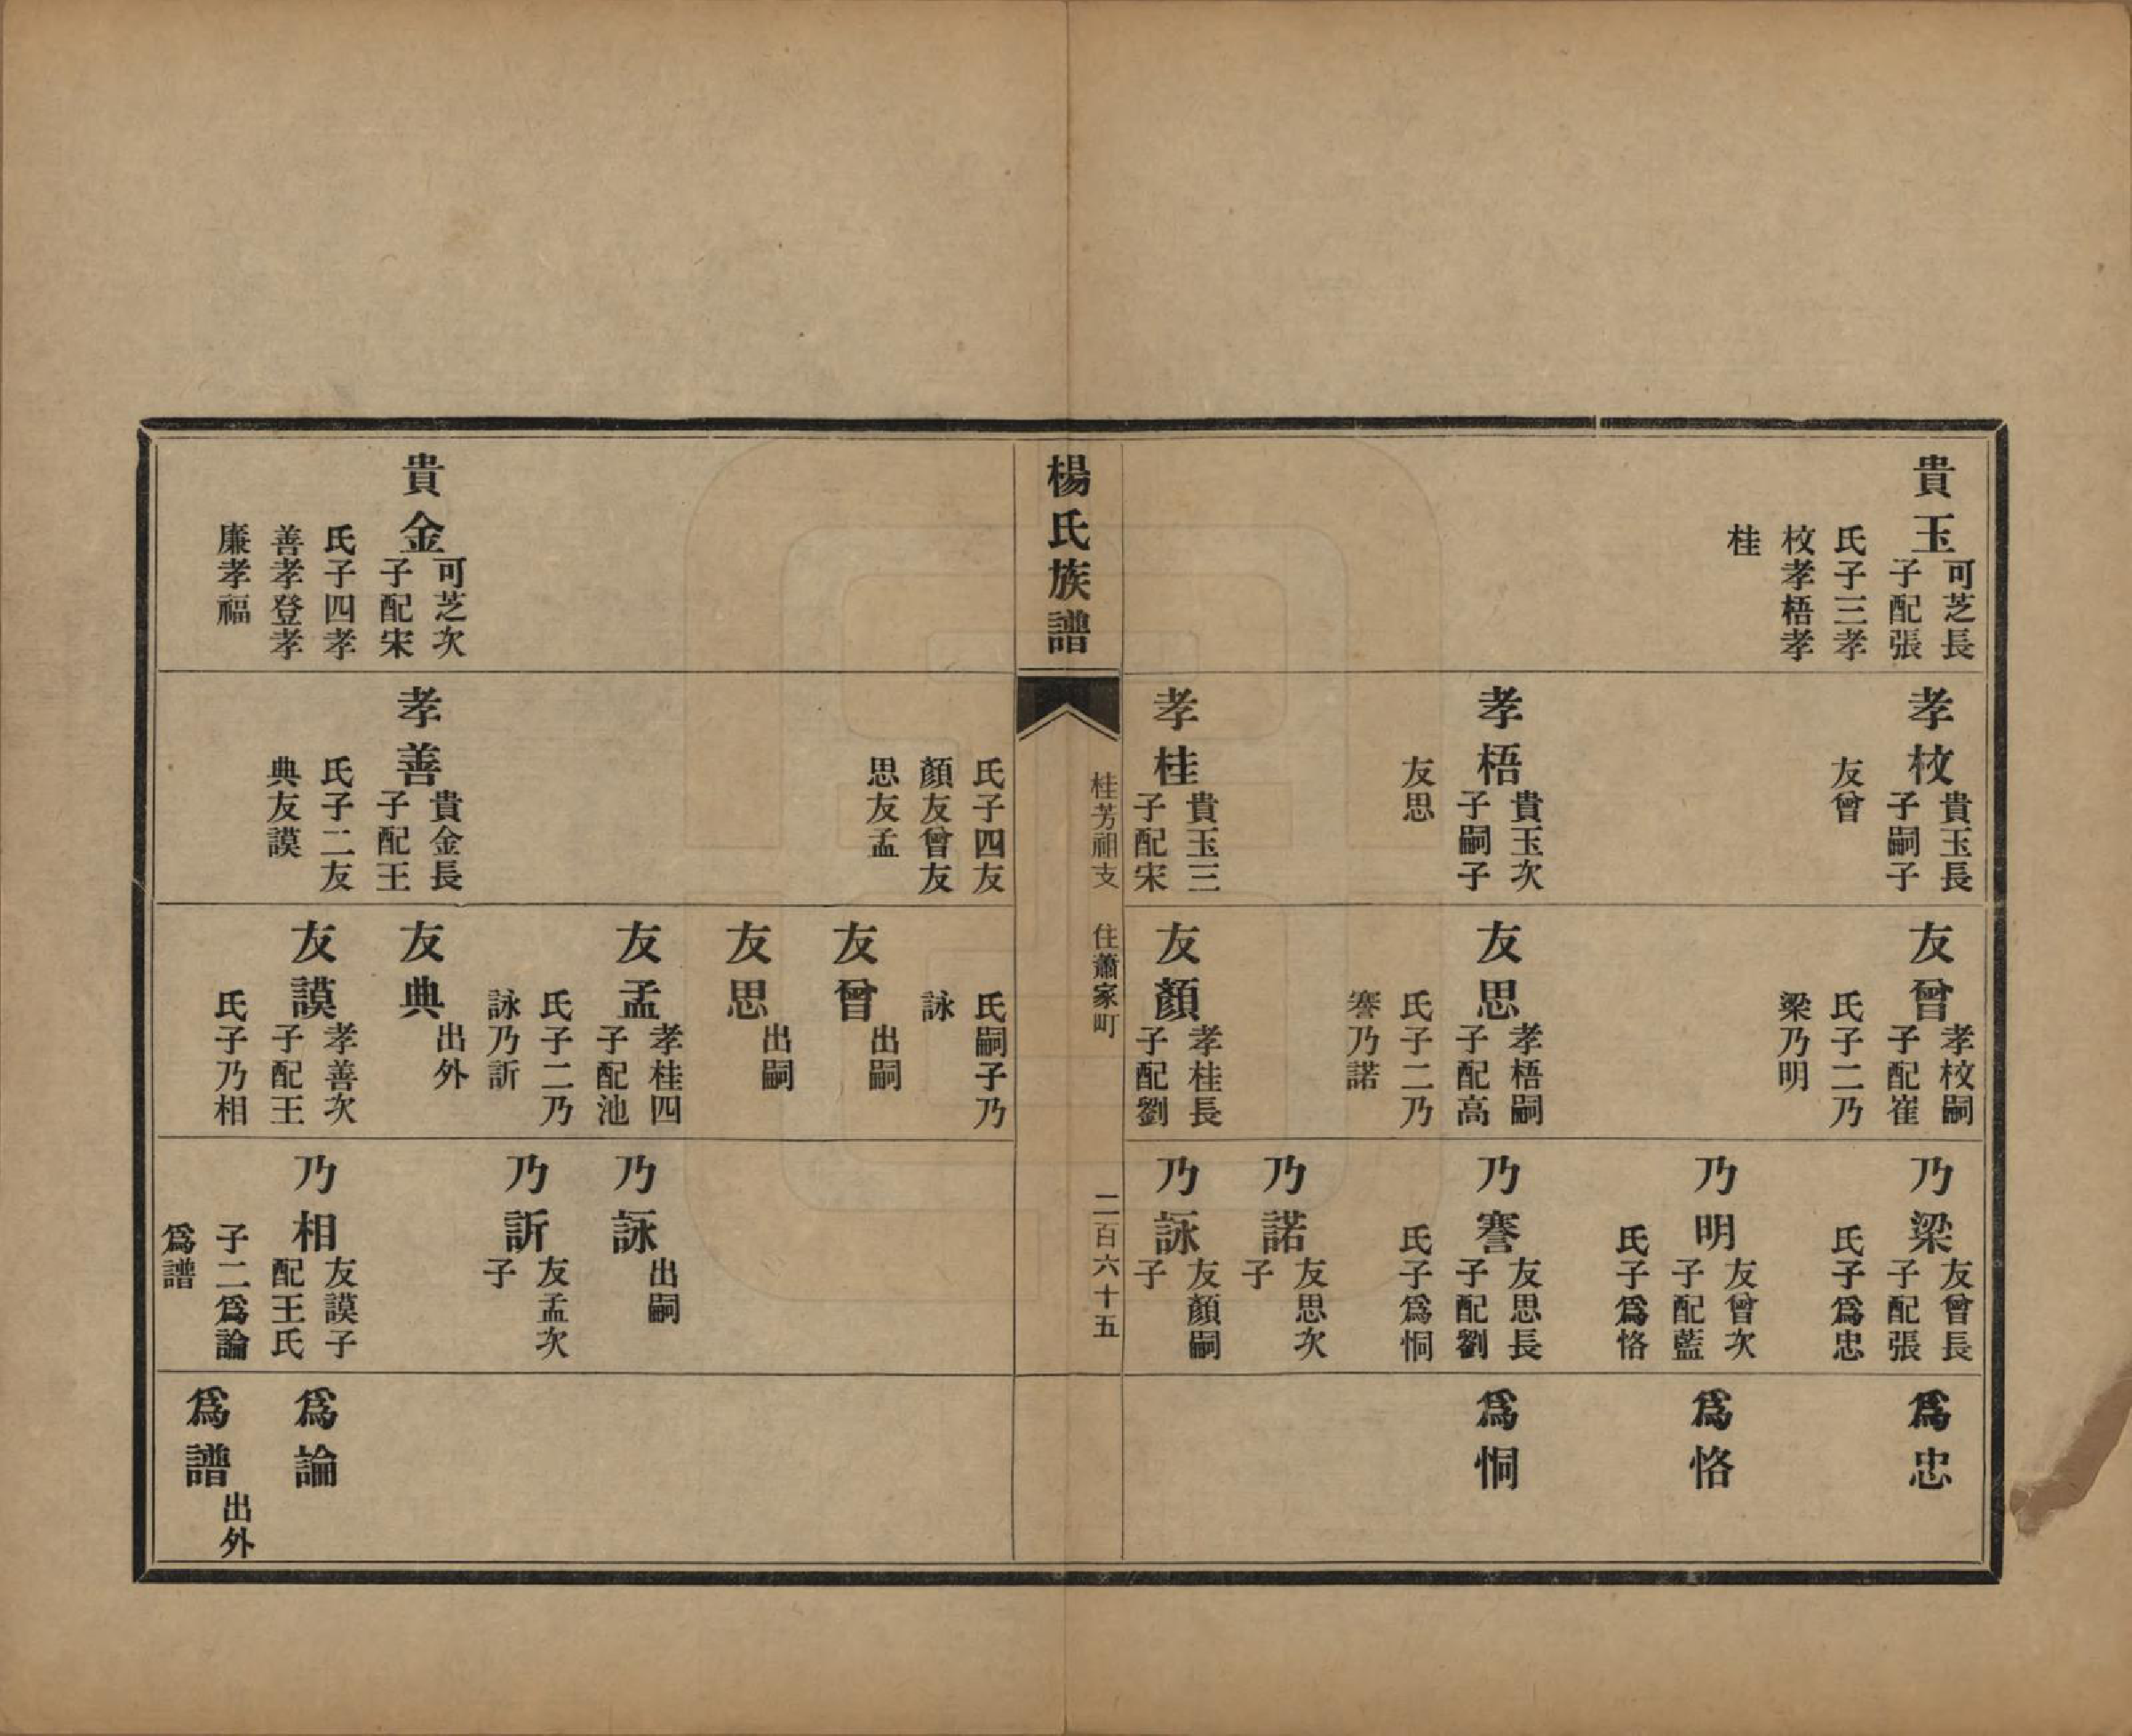 貴玉
可芝長
子配張
氏子三孝
校孝梧孝
桂
孝校
貴玉長
子嗣子
友曾
孝梧
貴玉次
子嗣子
友思
孝桂
貴玉三
子配宋
友曾
孝校嗣
子配崔
氏子二乃
梁乃明
友思
孝梧嗣
子配高
氏子二乃
謇乃諾
友顏
孝桂長
子配劉
乃梁
友曾長
子配張
氏子爲忠
乃明
友曾次
子配藍
氏子爲恪
乃謇
友思長
子配劉
氏子爲恫
乃諾
友思次
子
乃詠
友顏嗣
子
爲忠
爲恪
爲恫
楊氏族譜
桂芳祖支 住蕭家町
二百六十五
貴金
可芝次
子配宋
氏子四孝
善孝登孝
廉孝福
氏子四友
顏友曾友
思友孟
孝善
貴金長
子配王
氏子二友
典友謨
氏嗣子乃
詠
友曾
出嗣
友思
出嗣
友孟
孝桂四
子配池
氏子二乃
詠乃訢
友典
出外
友謨
孝善次
子配王
氏子乃相
乃詠
出嗣
乃訢
友孟次
子
乃相
友謨子
配王氏
子二爲論
爲譜
爲論
爲譜
出外